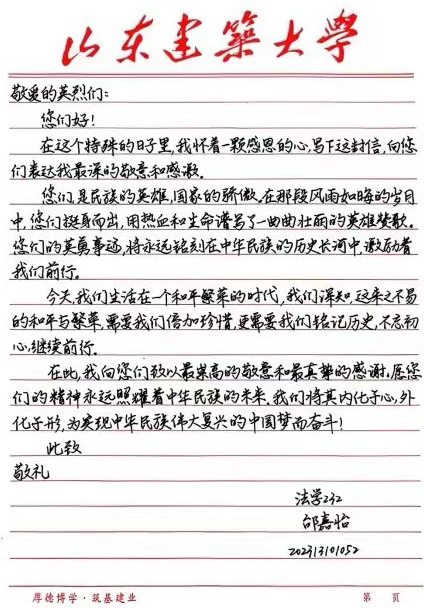 山东建筑大学
敬爱的英烈们：
您们好！
在这个特殊的日子里，我怀着一颗感恩的心，写下这封信，向您
们表达我最深的敬意和感激。
您们是民族的英雄，国家的骄傲。在那段风雨如晦的岁月
中，您们挺身而出，用热血和生命谱写了一曲曲壮丽的英雄赞歌。
您们的英勇事迹，将永远铭刻在中华民族的历史长河中，激励着
我们前行。
今天，我们生活在一个和平繁荣的时代，我们深知，这来之不易
的和平与繁荣，需要我们倍加珍惜，更需要我们铭记历史，不忘初
心，继续前行。
在此，我向您们致以最崇高的敬意和最真挚的感谢。愿您
们的精神永远照耀着中华民族的未来。我们将其内化于心，外
化于形，为实现中华民族伟大复兴的中国梦而奋斗！
此致
敬礼
法学232
邰嘉怡
202313101052
厚德博学·筑基建业
第 页